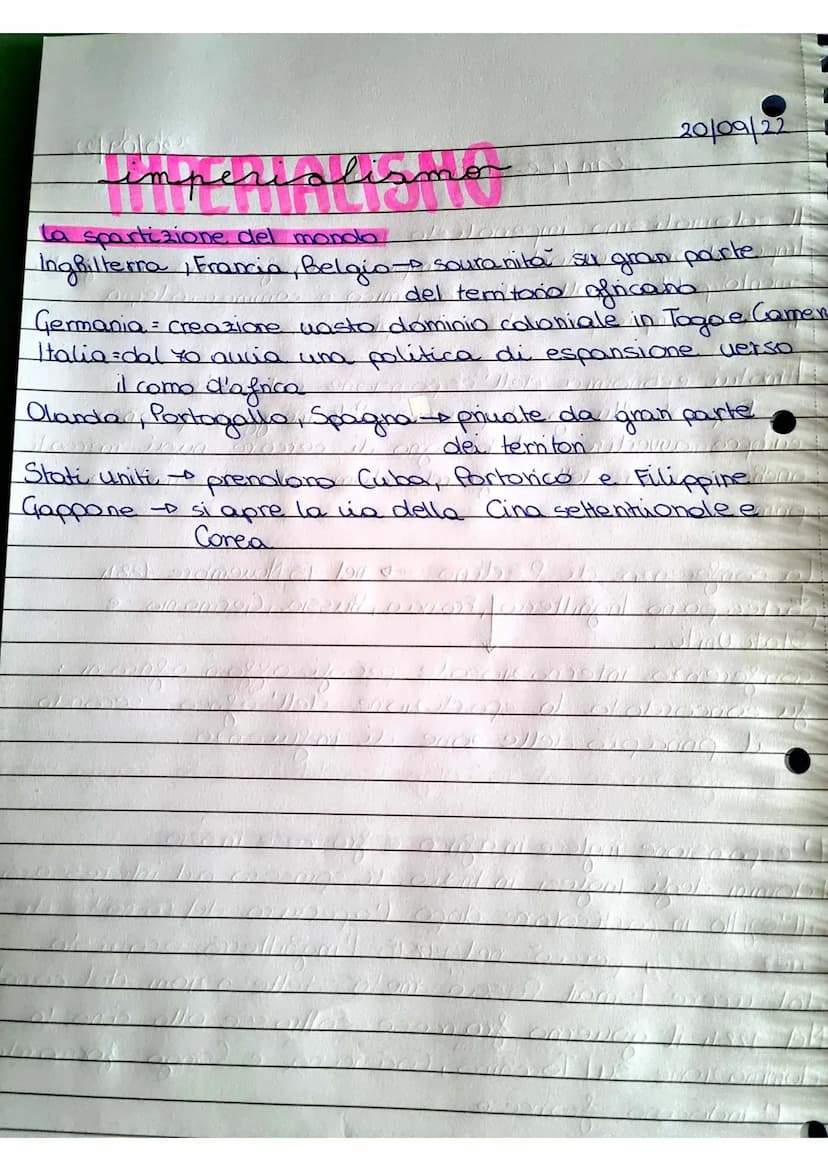 20/09/22
IMPERIALISMO
imperialismo
La spartizione del mondo
Inghilterra, Francia, Belgio → sovranità su gran parte
del territorio africano
Germania = creazione vasto dominio coloniale in Togo e Camer
Italia = dal 70 avvia una politica di espansione verso
il corno d'africa
Olanda, Portogallo, Spagna → private da gran parte
dei territori
Stati uniti → prendono Cuba, Portorico e Filippine
Giappone → si apre la via della Cina settentrionale e
Corea